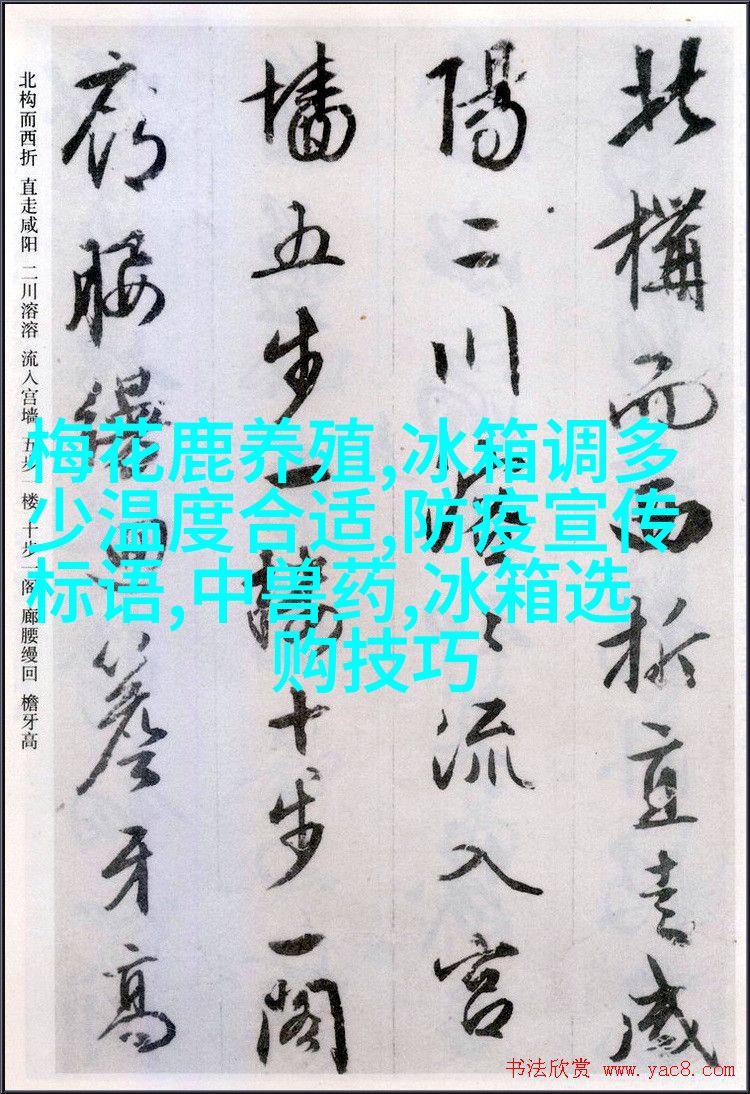 北構而西折直走咸
陽二川溶々流入宫
墻五步一樓十步一閣
廊腰缦回簷牙高
北构而西折 直走咸阳 二川溶溶 流入宫墙 五步一楼 十步一阁 廊腰缦回 檐牙高
梅花鹿养殖,冰箱调多
少温度合适,防疫宣传
标语,中兽药,冰箱选
购技巧
书法欣赏 www.yac8.com